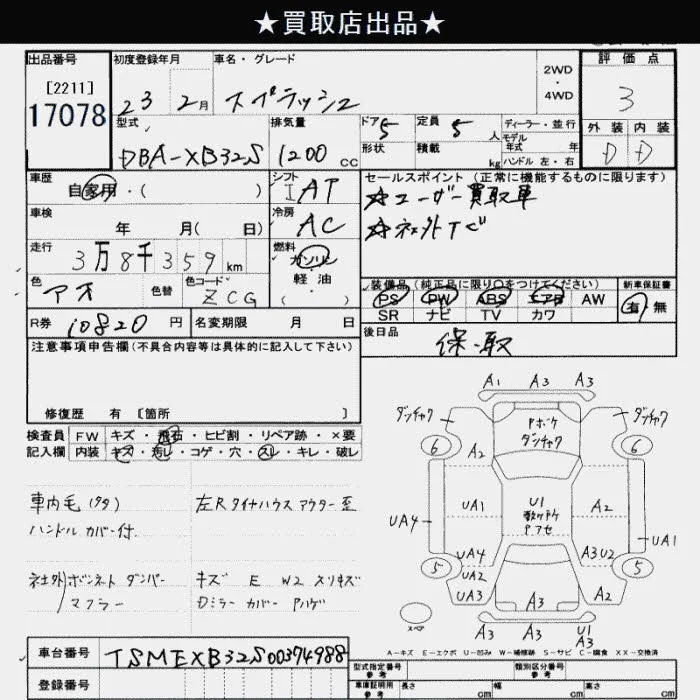 ★買取店出品★
出品番号 初度登録年月 車名・グレード 評価点
[2211]
17078
23 2月 スプラッシュ
2WD
・
4WD
3
型式 排気量 ドア 定員 ディーラー・並行
外装 内装
DBA-XB32S 1200 CC 5 5 人 モデル年式 年
形状 積載 kg ハンドル 左・右
D D
車歴 シフト セールスポイント (正常に機能するものに限ります)
自家用・( ) I AT ☆ユーザー買取車
車検 冷房
年 月( 日) AC ☆社外TV
走行 燃料
3万8千359km ガソリン
軽油
( )
色 色替 色コード
アオ ZCG
装備品(純正品に限り○をつけてください) 新車保証書
PS PW ABS エアB AW 有 無
SR ナビ TV カワ
R券 10820 円 名変期限 月 日
後日品
保・取
注意事項申告欄(不具合内容等は具体的に記入して下さい)
修復歴 有 [箇所 ]
検査員 FW キズ・飛石・ヒビ割・リペア跡・×要
記入欄 内装 キズ・汚レ・コゲ・穴・スレ・キレ・破レ
車内毛(タタ) 左Rタイヤハウスアウター歪
ハンドルカバー付
社外ボンネットダンパー キズ E W2 スリキズ
マフラー Dミラーカバー Pハゲ
A1 A3 A3
ダンチャク Pボケ ダンチャク
ダンチャク
6 6
A2
UA1 U1 A2
UA4 P.アセ UA1
UA4 A3U2
5 UA2 5
UA3 A3 A2
スペア A3 A3 U1
A3
A-キズ E-エクボ U-凹み W-補修跡 S-サビ C-腐食 XX-交換済
車台番号 TSMEXB32S00374988
型式指定番号 参考 類別区分番号 参考
登録番号
車庫証明用 参考 長さ cm 幅 cm 高さ cm